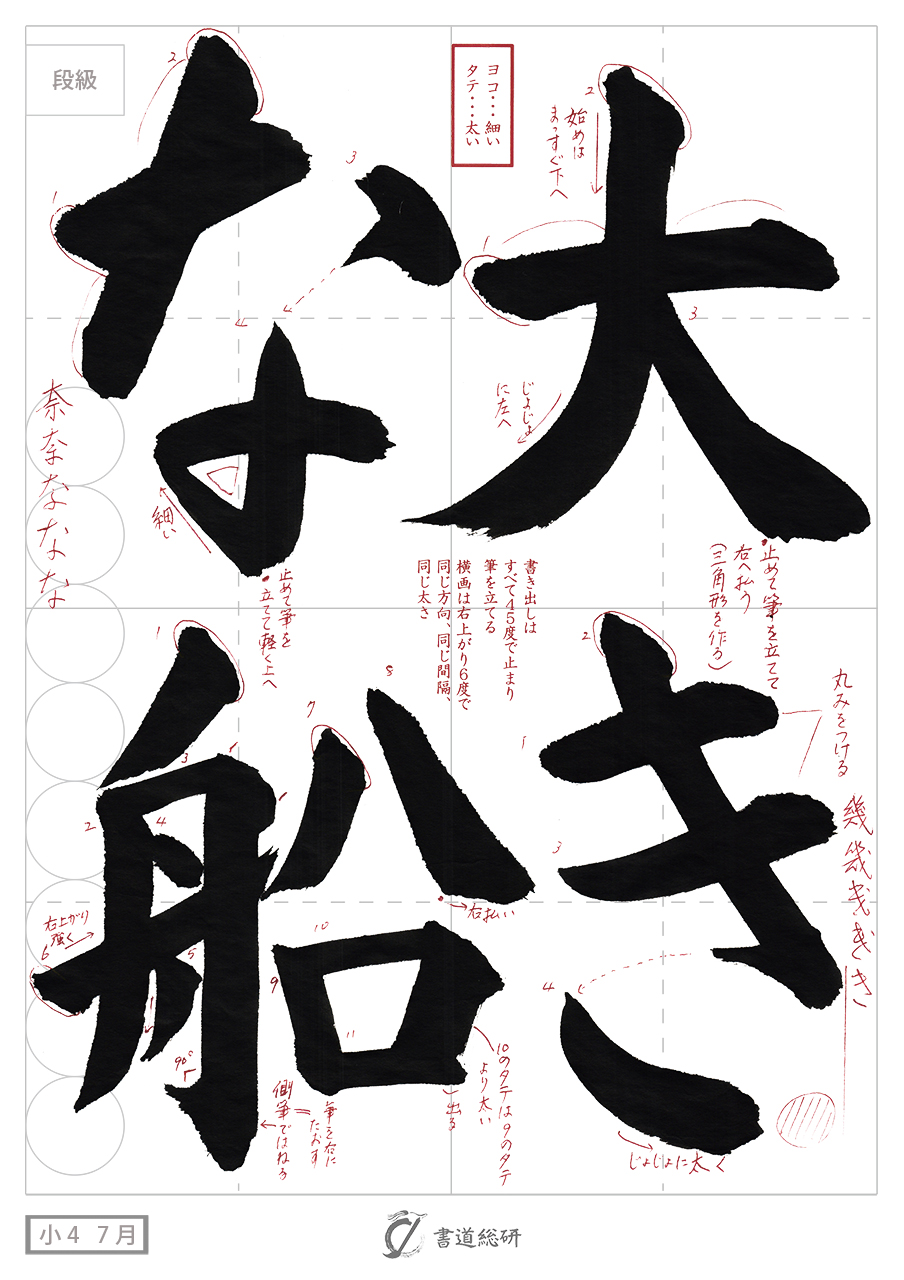 大きな船
ヨコ・・・細い
タテ・・・太い
段級
2
始めは
まっすぐ下へ
1
3
じょじょ
に左へ
止めて筆を立てて
右へ払う
(三角形を作る)
2
1
3
4
丸みをつける
幾幾きき
じょじょに太く
書き出しは
すべて45度で止まり
筆を立てる
横画は右上がり6度で
同じ方向、同じ間隔、
同じ太さ
2
1
3
細い
止めて筆を
立てて軽く上へ
奈奈なな
1
2
3
4
5
6
7
8
9
10
11
右上がり
強く
90°
右払い
10のタテは9のタテ
より太い
出る
筆を右に
たおす
側筆ではねる
小4 7月
書道総研